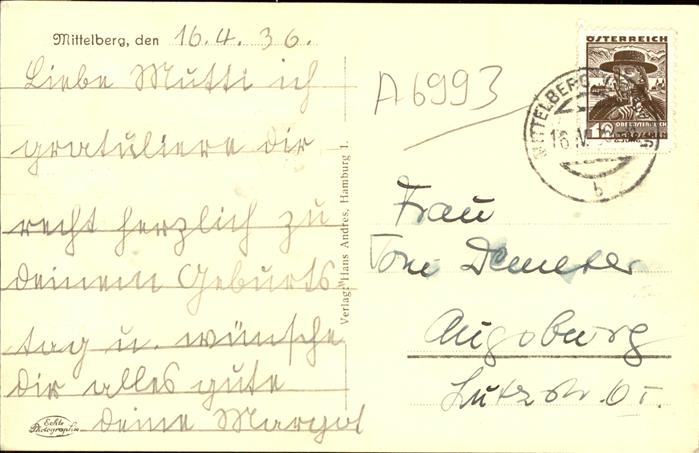 Mittelberg, den 16.4.36.
Liebe Mutti ich
gratuliere dir
recht herzlich zu
deinem Geburts
tag u. wünsche
dir alles gute
deine Margot
Echte
Photographie
Verlag: Hans Andres, Hamburg 1.
A6993
ÖSTERREICH
MITTELBERG
16.IV.
b
Frau
Toni Demeter
Augsburg
Lutzstr.